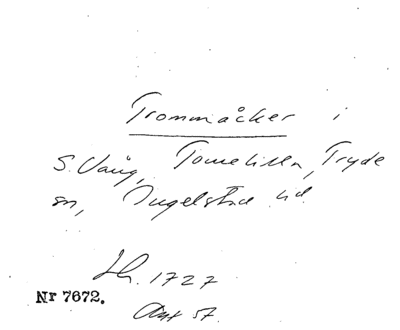 Trommåker i
S. Vång, Tomelilla, Tryde
sn, Ingelstad hd.
Lh. 1727
Nr 7672.
Akt 57.